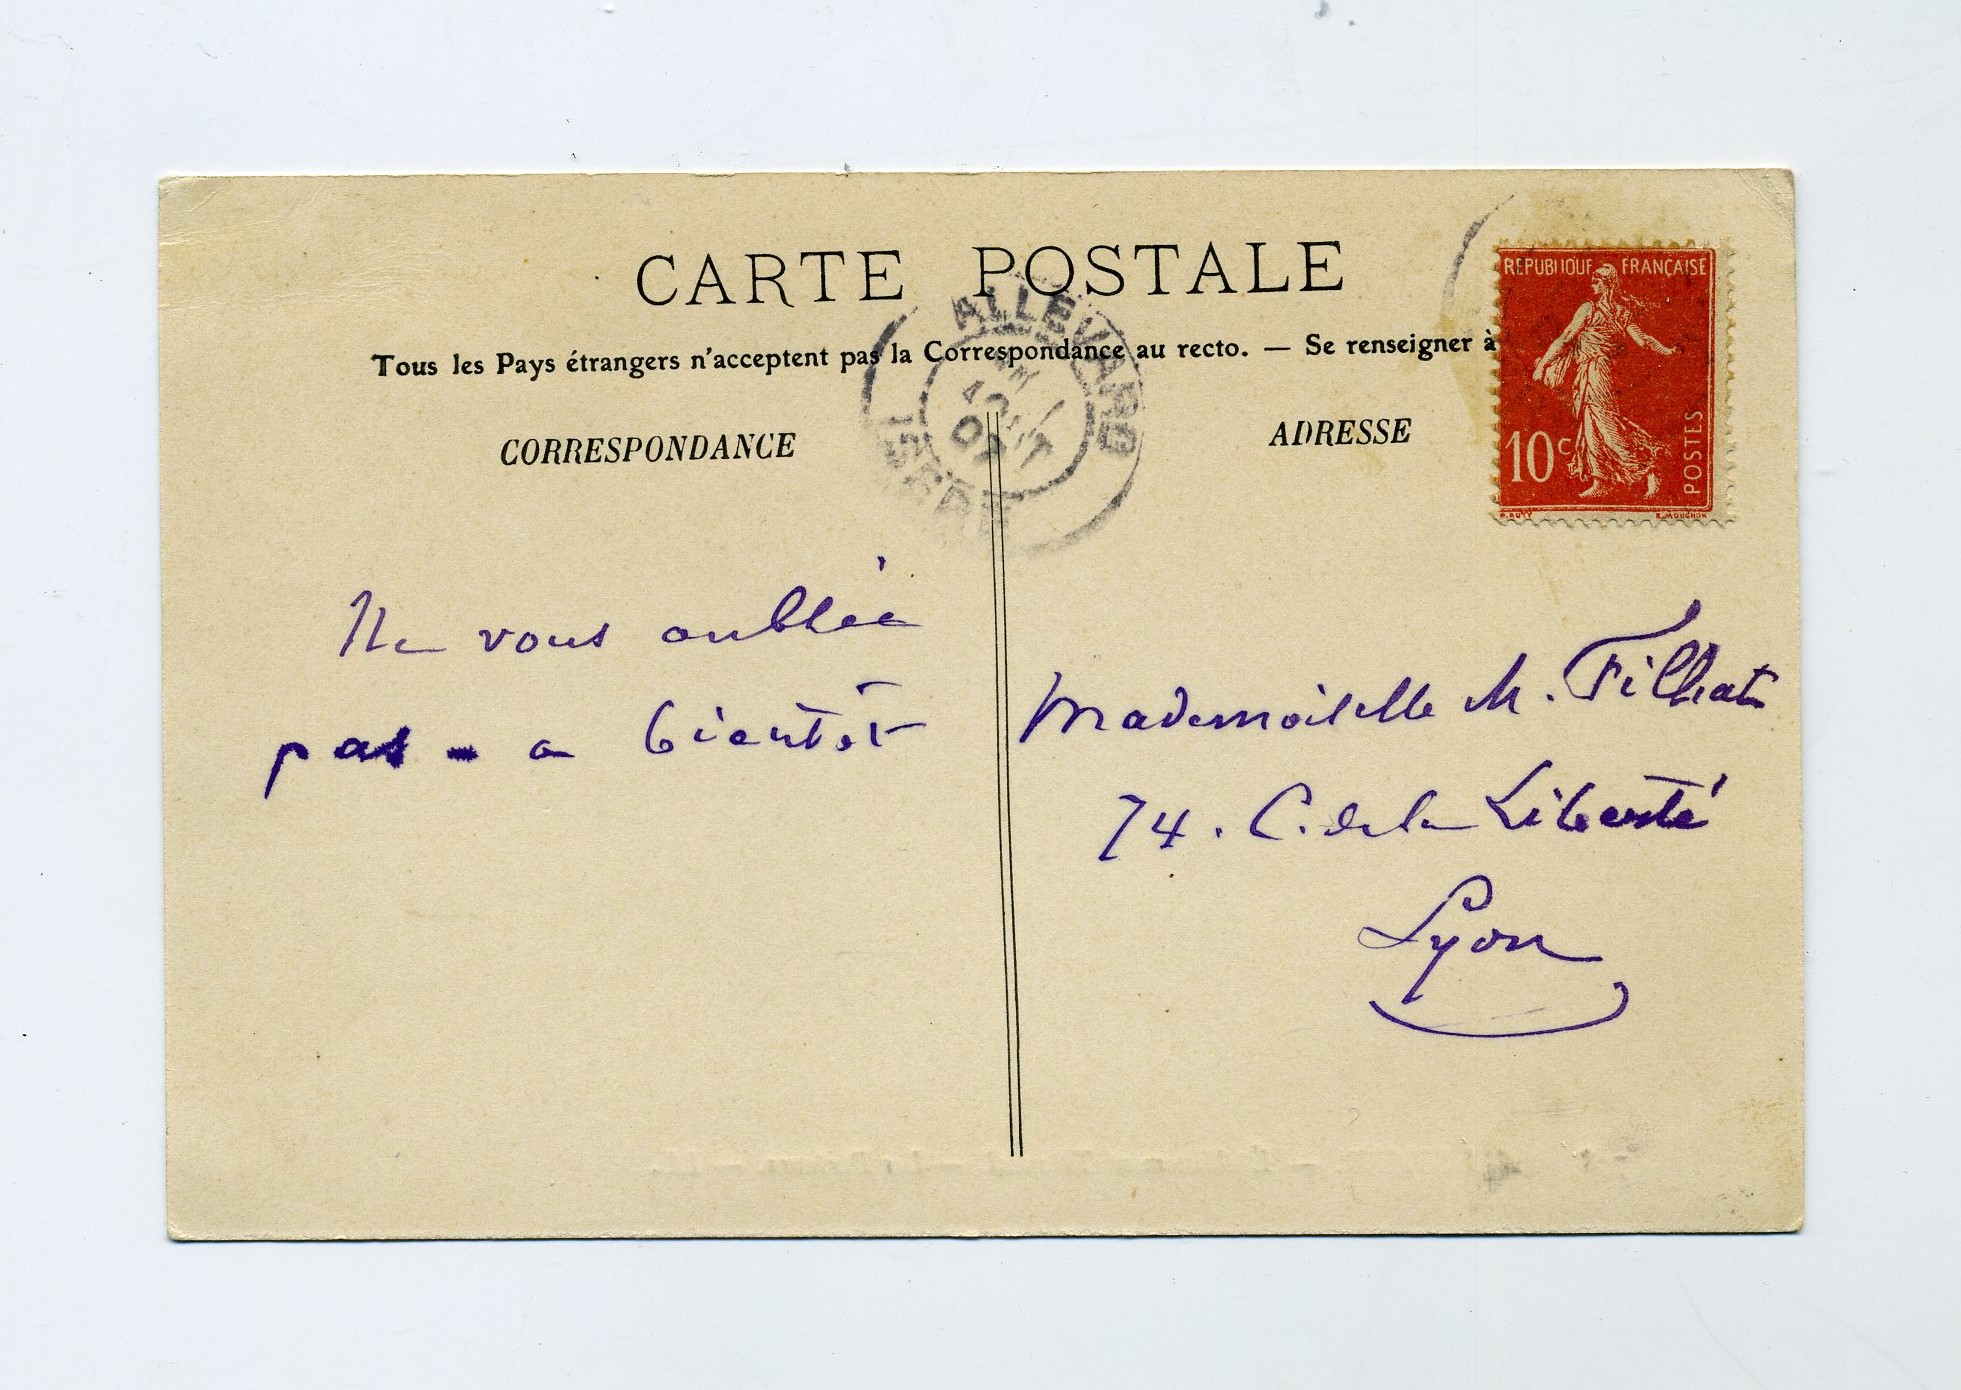 CARTE POSTALE
Tous les Pays étrangers n'acceptent pas la Correspondance au recto. — Se renseigner à
CORRESPONDANCE
ADRESSE
ALLEVARD
AOUT
07
ISÈRE
REPUBLIQUE FRANÇAISE
10c
POSTES
O. ROTY
E. MOUCHON
Ne vous oubliée
pas - a bientôt
Mademoiselle M. Filhat
74. C. de la Liberté
Lyon